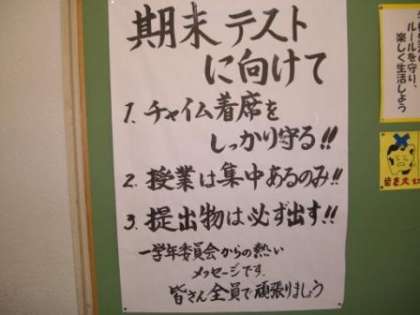 期末テスト
に向けて
1. チャイム着席を
しっかり守る!!
2. 授業は集中あるのみ!!
3. 提出物は必ず出す!!
一学年委員会からの熱い
メッセージです。
皆さん全員で頑張りましょう
ルールを守り、
楽しく生活しよう